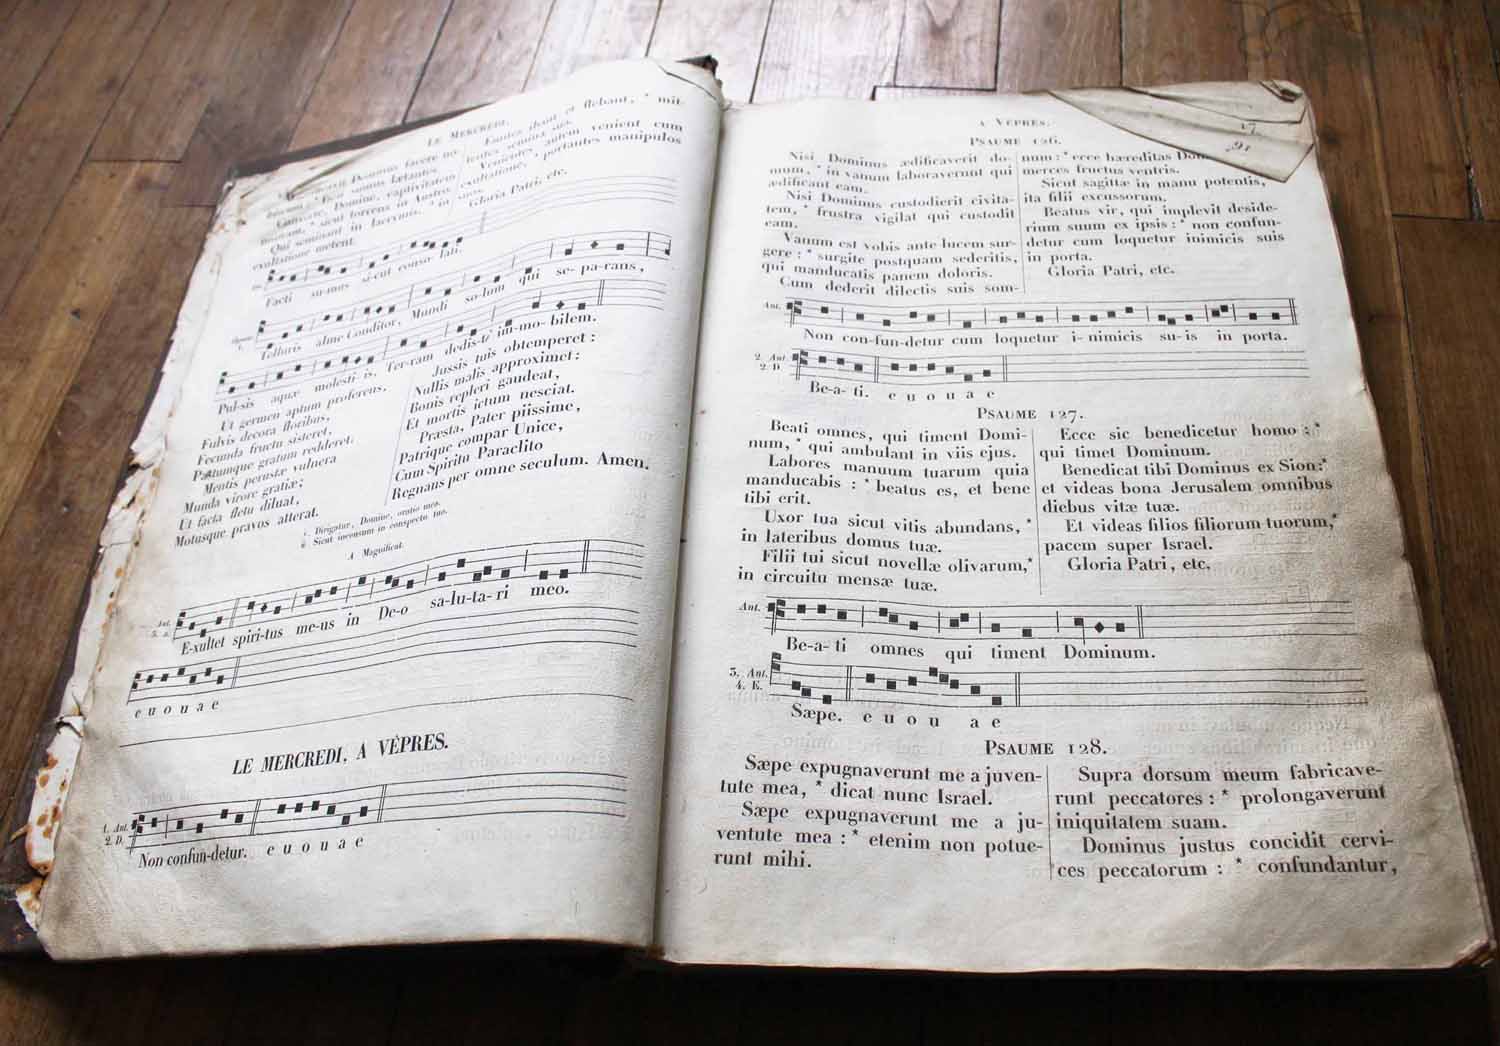 LE MERCREDI.
Domine, captivitatem
sicut torrens in Austro.
Qui seminant in lacrymis, * in
exultatione metent.
Euntes ibant et flebant, * mit-
tentes semina sua.
Venientes autem venient cum
exultatione, * portantes manipulos
suos.
Gloria Patri, etc.
Facti su-mus si-cut conso-lati.
Telluris alme Conditor, Mundi so-lum qui se-pa-rans,
Pul-sis aquæ molesti-is, Ter-ram dedis-ti im-mo-bilem.
Ut germen aptum proferens,
Fulvis decora floribus,
Fecunda fructu sisteret,
Pastumque gratum redderet.
Mentis perustæ vulnera
Munda virore gratiæ;
Ut facta fletu diluat,
Motusque pravos atterat.
Jussis tuis obtemperet:
Nullis malis approximet:
Bonis repleri gaudeat,
Et mortis ictum nesciat.
Præsta, Pater piissime,
Patrique compar Unice,
Cum Spiritu Paraclito
Regnans per omne seculum. Amen.
Dirigatur, Domine, oratio mea.
Sicut incensum in conspectu tuo.
A Magnificat.
Ant.
E-xultet spiri-tus me-us in De-o sa-lu-ta-ri meo.
e u o u a e
LE MERCREDI, A VÊPRES.
1. Ant.
2. D.
Non confun-detur. e u o u a e
A VÊPRES.
17
91
PSAUME 126.
Nisi Dominus ædificaverit do-
mum, * in vanum laboraverunt qui
ædificant eam.
Nisi Dominus custodierit civita-
tem, * frustra vigilat qui custodit
eam.
Vanum est vobis ante lucem sur-
gere : * surgite postquam sederitis,
qui manducatis panem doloris.
Cum dederit dilectis suis som-
num : * ecce hæreditas
merces fructus ventris.
Sicut sagittæ in manu potentis,
ita filii excussorum.
Beatus vir, qui implevit deside-
rium suum ex ipsis : * non confun-
detur cum loquetur inimicis suis
in porta.
Gloria Patri, etc.
Ant.
Non con-fun-detur cum loquetur i-nimicis su-is in porta.
2. Ant.
2 D.
Be-a-ti. e u o u a e
PSAUME 127.
Beati omnes, qui timent Domi-
num, * qui ambulant in viis ejus.
Labores manuum tuarum quia
manducabis : * beatus es, et bene
tibi erit.
Uxor tua sicut vitis abundans, *
in lateribus domus tuæ.
Filii tui sicut novellæ olivarum, *
in circuitu mensæ tuæ.
Ecce sic benedicetur homo : *
qui timet Dominum.
Benedicat tibi Dominus ex Sion : *
et videas bona Jerusalem omnibus
diebus vitæ tuæ.
Et videas filios filiorum tuorum, *
pacem super Israel.
Gloria Patri, etc.
Ant.
Be-a-ti omnes qui timent Dominum.
3. Ant.
4. E.
Sæpe. e u o u a e
PSAUME 128.
Sæpe expugnaverunt me a juven-
tute mea, * dicat nunc Israel.
Sæpe expugnaverunt me a ju-
ventute mea : * etenim non potue-
runt mihi.
Supra dorsum meum fabricave-
runt peccatores : * prolongaverunt
iniquitatem suam.
Dominus justus concidit cervi-
ces peccatorum : * confundantur,